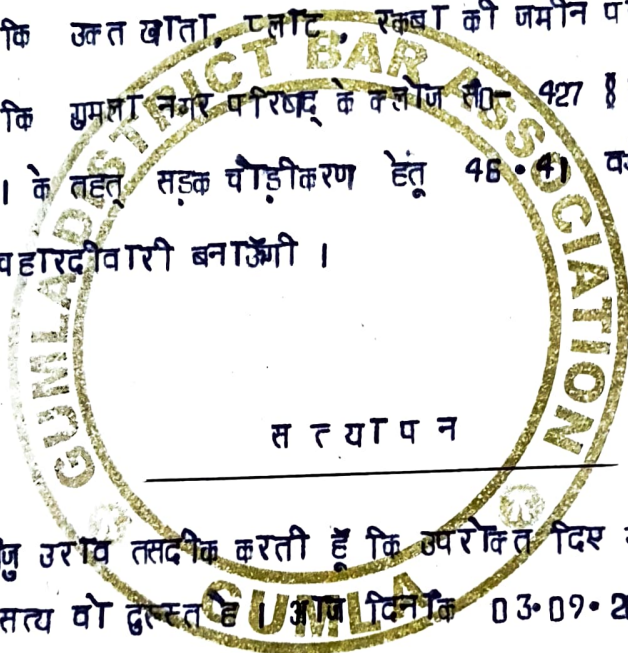 कि उक्त खाता, प्लॉट, रकबा की जमीन प
कि गुमला नगर परिषद् के क्लोज सं0- 427 §
। के तहत् सड़क चौड़ीकरण हेतू 46.41 व
चहारदीवारी बनाऊँगी ।
स त्या प न
जु उराँव तसदीक करती हूँ कि उपरोक्त दिए
सत्य वो दुरूस्त है । आज दिनाँक 03.09.2
GUMLA DISTRICT BAR ASSOCIATION
GUMLA